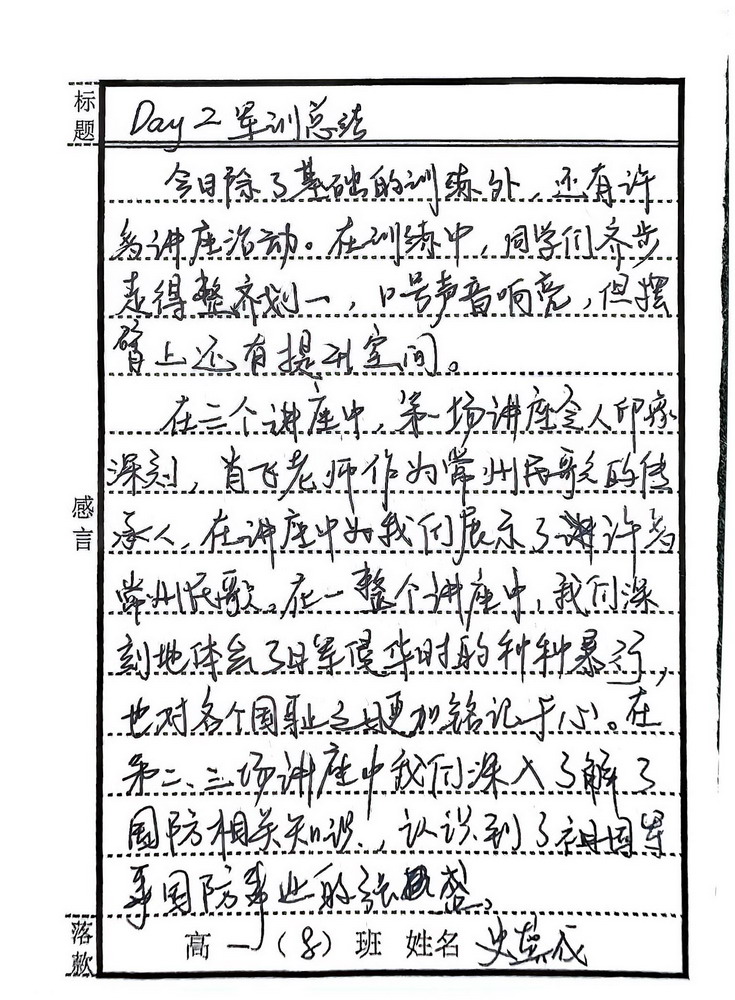 标题
Day 2 军训总结
今日除了基础的训练外，还有许
多讲座活动。在训练中，同学们齐步
走得整齐划一，口号声音响亮，但摆
臂上还有提升空间。
在三个讲座中，第一场讲座令人印象
深刻，肖飞老师作为常州民歌的传
承人，在讲座中为我们展示了许多
常州民歌。在一整个讲座中，我们深
感言
刻地体会了日军侵华时的种种暴行，
也对各个国耻之日更加铭记于心。在
第二、三场讲座中我们深入了解了
国防相关知识，认识到了祖国军
事国防事业的强盛。
落款
高一（8）班 姓名 史